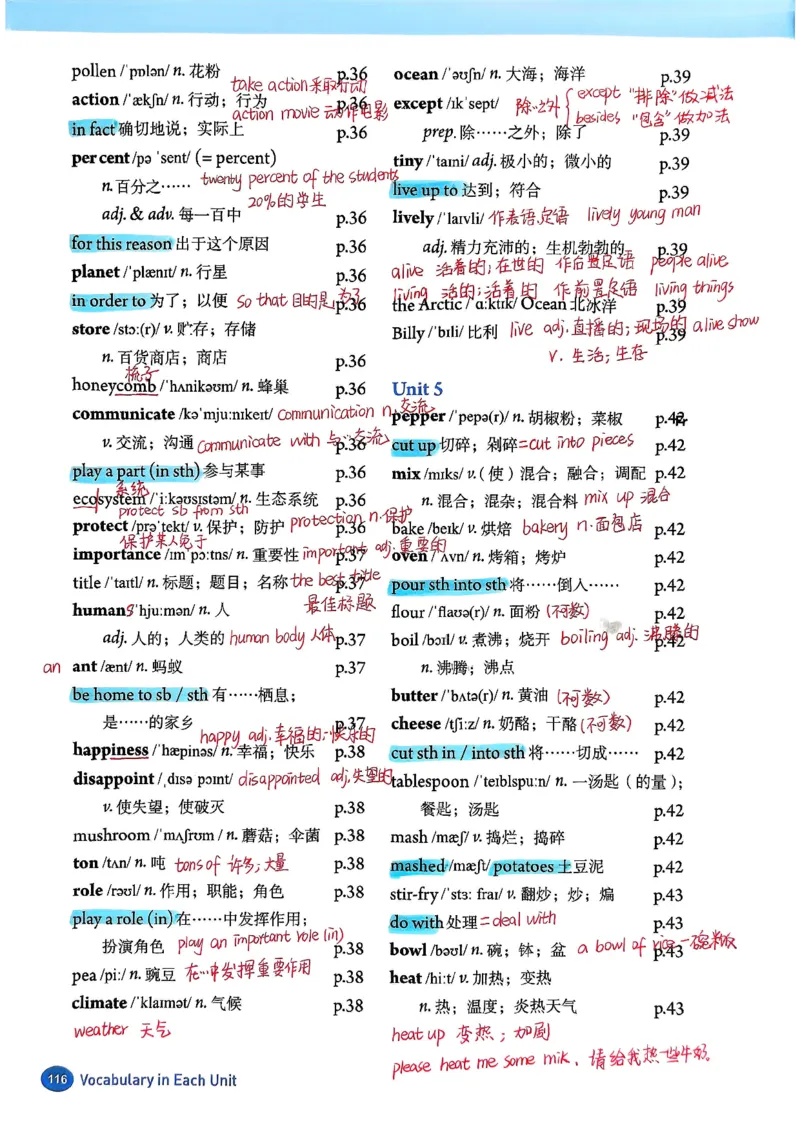 pollen /ˈpɒlən/ n. 花粉 p.36
take action 采取行动
action /ˈækʃn/ n. 行动；行为 p.36
action movie 动作电影
in fact 确切地说；实际上 p.36
per cent /pə ˈsent/ (= percent)
n. 百分之…… twenty percent of the students
20%的学生
adj. & adv. 每一百中 p.36
for this reason 出于这个原因 p.36
planet /ˈplænɪt/ n. 行星 p.36
in order to 为了；以便 so that 目的是，为了 p.36
store /stɔː(r)/ v. 贮存；存储
n. 百货商店；商店 p.36
梳子
honeycomb /ˈhʌnikəʊm/ n. 蜂巢 p.36
communicate /kəˈmjuːnɪkeɪt/ communication n. 交流
v. 交流；沟通 communicate with 与…交流 p.36
play a part (in sth) 参与某事 p.36
系统
ecosystem /ˈiːkəʊsɪstəm/ n. 生态系统 p.36
protect sb from sth
protect /prəˈtekt/ v. 保护；防护 protection n. 保护 p.36
保护某人免于
importance /ɪmˈpɔːtns/ n. 重要性 important adj. 重要的 p.37
title /ˈtaɪtl/ n. 标题；题目；名称 the best title p.37
最佳标题
humans /ˈhjuːmən/ n. 人
adj. 人的；人类的 human body 人体 p.37
an ant /ænt/ n. 蚂蚁 p.37
be home to sb / sth 有……栖息；
是……的家乡 p.37
happy adj. 幸福的；快乐的
happiness /ˈhæpinəs/ n. 幸福；快乐 p.38
disappoint /ˌdɪsəˈpɔɪnt/ disappointed adj. 失望的
v. 使失望；使破灭 p.38
mushroom /ˈmʌʃrʊm/ n. 蘑菇；伞菌 p.38
ton /tʌn/ n. 吨 tons of 许多；大量 p.38
role /rəʊl/ n. 作用；职能；角色 p.38
play a role (in) 在……中发挥作用；
扮演角色 play an important role (in) p.38
pea /piː/ n. 豌豆 在…中发挥重要作用 p.38
climate /ˈklaɪmət/ n. 气候 p.38
weather 天气
116 Vocabulary in Each Unit
ocean /ˈəʊʃn/ n. 大海；海洋 p.39
except /ɪkˈsept/ 除…之外 { except "排除"做减法
besides "包含"做加法
prep. 除……之外；除了 p.39
tiny /ˈtaɪni/ adj. 极小的；微小的 p.39
live up to 达到；符合 p.39
lively /ˈlaɪvli/ 作表语，定语 lively young man
adj. 精力充沛的；生机勃勃的 p.39
alive 活着的；在世的 作后置定语 people alive
living 活的；活着的 作前置定语 living things
the Arctic /ˈɑːktɪk/ Ocean 北冰洋 p.39
Billy /ˈbɪli/ 比利 live adj. 直播的；现场的 a live show p.39
v. 生活；生存
Unit 5
pepper /ˈpepə(r)/ n. 胡椒粉；菜椒 p.42
cut up 切碎；剁碎 =cut into pieces p.42
mix /mɪks/ v.（使）混合；融合；调配 p.42
n. 混合；混杂；混合料 mix up 混合
bake /beɪk/ v. 烘焙 bakery n. 面包店 p.42
oven /ˈʌvn/ n. 烤箱；烤炉 p.42
pour sth into sth 将……倒入…… p.42
flour /ˈflaʊə(r)/ n. 面粉 (不可数) p.42
boil /bɔɪl/ v. 煮沸；烧开 boiling adj. 沸腾的 p.42
n. 沸腾；沸点
butter /ˈbʌtə(r)/ n. 黄油 (不可数) p.42
cheese /tʃiːz/ n. 奶酪；干酪 (不可数) p.42
cut sth in / into sth 将……切成…… p.42
tablespoon /ˈteɪblspuːn/ n. 一汤匙（的量）；
餐匙；汤匙 p.42
mash /mæʃ/ v. 捣烂；捣碎 p.42
mashed /mæʃt/ potatoes 土豆泥 p.42
stir-fry /ˈstɜː fraɪ/ v. 翻炒；炒；煸 p.43
do with 处理 =deal with p.43
bowl /bəʊl/ n. 碗；钵；盆 a bowl of rice 一碗米饭 p.43
heat /hiːt/ v. 加热；变热
n. 热；温度；炎热天气 p.43
heat up 变热；加剧
please heat me some mik. 请给我热一些牛奶.